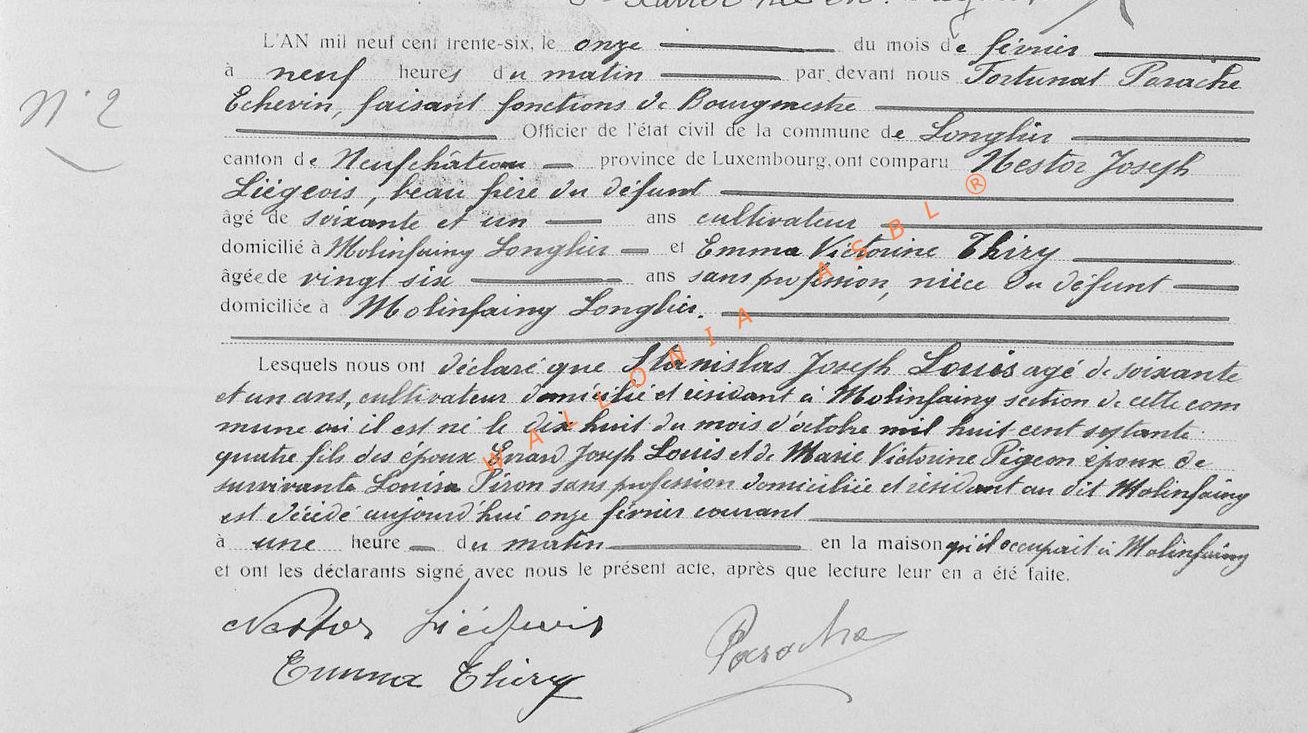 L'AN mil neuf cent trente-six, le onze du mois de février
N° 2
à neuf heures du matin par devant nous Fortunat Parache
Echevin, faisant fonctions de Bourgmestre
Officier de l'état civil de la commune de Longlier
canton de Neufchâteau province de Luxembourg, ont comparu Nestor Joseph
Liégeois, beau frère du défunt
âgé de soixante et un ans cultivateur
domicilié à Molinfaing Longlier et Emma Victorine Thiry
âgée de vingt six ans sans profession, nièce du défunt
domiciliée à Molinfaing Longlier.
Lesquels nous ont déclaré que Stanislas Joseph Louis agé de soixante
et un ans, cultivateur domicilié et résidant à Molinfaing section de cette com
mune où il est né le dix huit du mois d'octobre mil huit cent septante
quatre fils des époux Joseph Louis et de Marie Victorine Pigeon époux de
survivante Louisa Piron sans profession domiciliée et résidant au dit Molinfaing
est décédé aujourd'hui onze février courant
à une heure du matin en la maison qu'il occupait à Molinfaing
et ont les déclarants signé avec nous le présent acte, après que lecture leur en a été faite.
Nestor Liégeois
Parache
Emma Thiry
WALLONIA ASBL ®